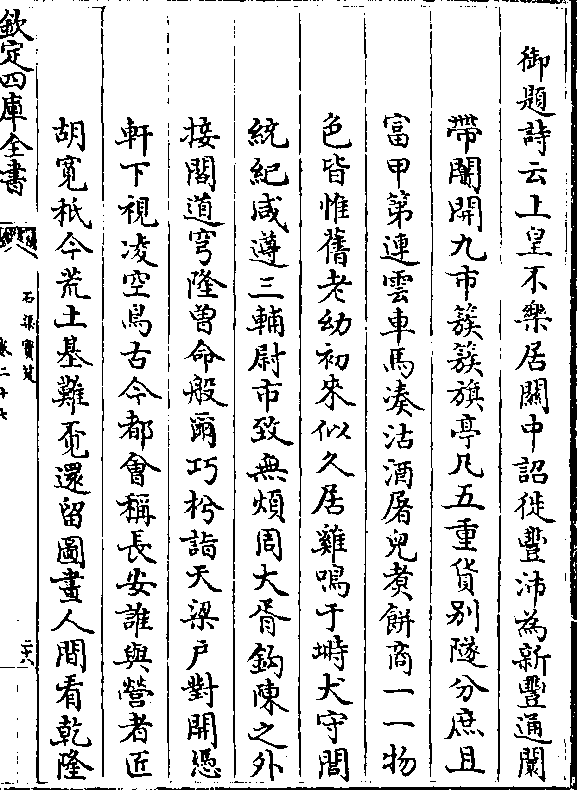 御題詩云上皇不樂居關中詔徙豐沛為新豐通闤
帶闠開九市簇簇旗亭凡五重貨别隧分庶且
富甲第連雲車馬湊沽酒屠兒煑餅商一一物
色皆惟舊老幼初來似久居雞鳴于塒犬守閭
統紀咸遵三輔尉市致無煩周大胥鈎陳之外
接閣道穹隆曽命般爾巧枍詣天梁户對開憑
軒下視凌空鳥古今都會稱長安誰與營者匠
胡寛秪今荒土基難覔還留圖畫人間看乾隆
欽定四庫全書
石渠寶笈
卷二十七